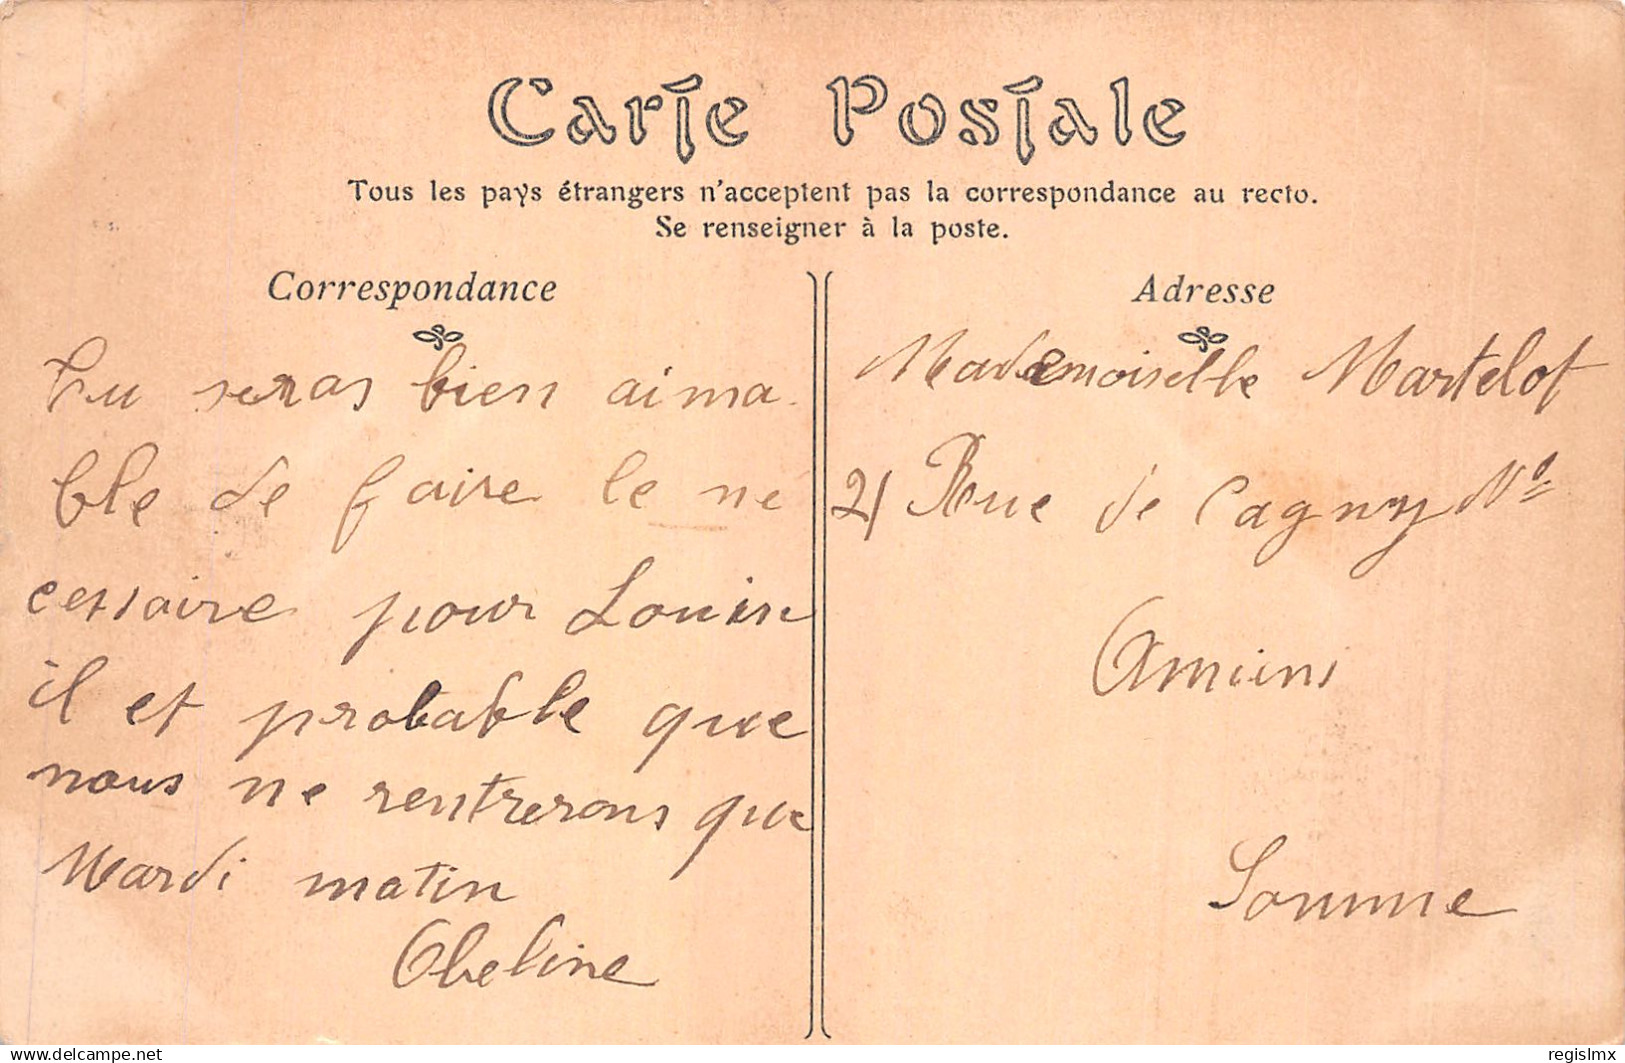 Carte Postale
Tous les pays étrangers n'acceptent pas la correspondance au recto.
Se renseigner à la poste.
Correspondance
Tu seras bien aima
ble de faire le né
cessaire pour Louise
il et probable que
nous ne rentrerons que
Mardi matin
Obeline
Adresse
Mademoiselle Martelot
21 Rue de Cagny No
Amiens
Somme
delcampe.net
regislmx